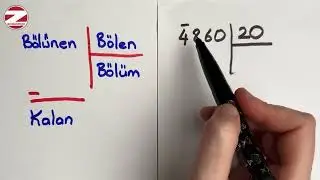 Bölünen Bölen
Bölüm
Kalan
4860 20